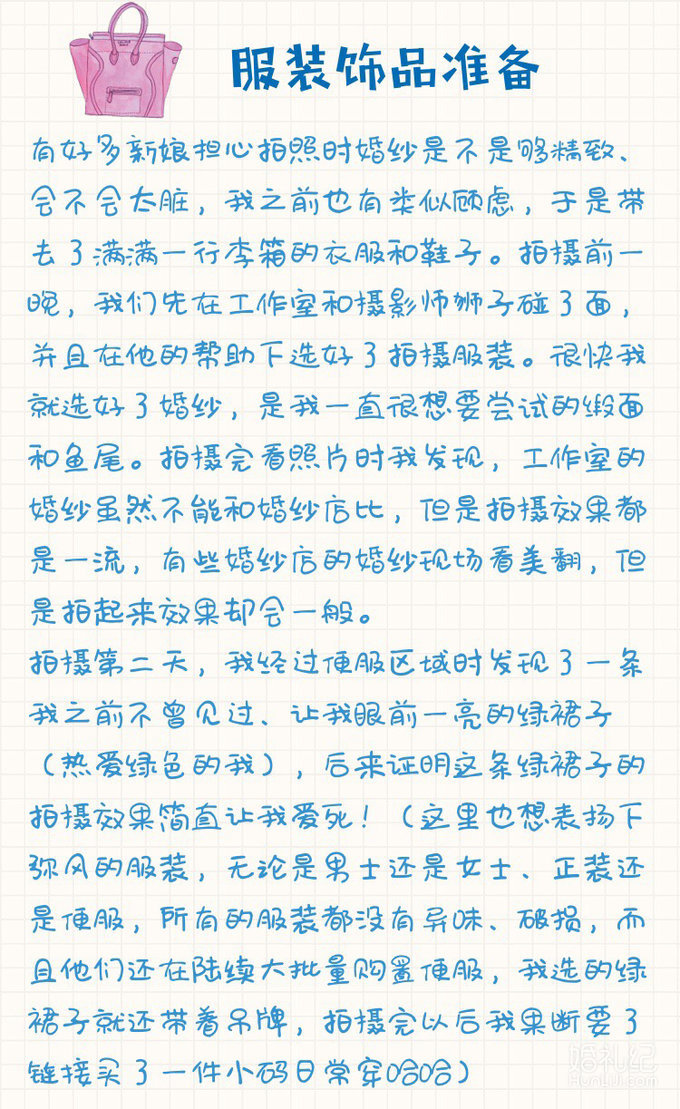 服装饰品准备
有好多新娘担心拍照时婚纱是不是够精致、
会不会太脏，我之前也有类似顾虑，于是带
去了满满一行李箱的衣服和鞋子。拍摄前一
晚，我们先在工作室和摄影师狮子碰了面，
并且在他的帮助下选好了拍摄服装。很快我
就选好了婚纱，是我一直很想要尝试的缎面
和鱼尾。拍摄完看照片时我发现，工作室的
婚纱虽然不能和婚纱店比，但是拍摄效果都
是一流，有些婚纱店的婚纱现场看美翻，但
是拍起来效果却会一般。
拍摄第二天，我经过便服区域时发现了一条
我之前不曾见过、让我眼前一亮的绿裙子
（热爱绿色的我），后来证明这条绿裙子的
拍摄效果简直让我爱死！（这里也想表扬下
弥风的服装，无论是男士还是女士、正装还
是便服，所有的服装都没有异味、破损，而
且他们还在陆续大批量购置便服，我选的绿
裙子就还带着吊牌，拍摄完以后我果断要了
链接买了一件小码日常穿哈哈）
婚礼纪
HUNLIJI.COM